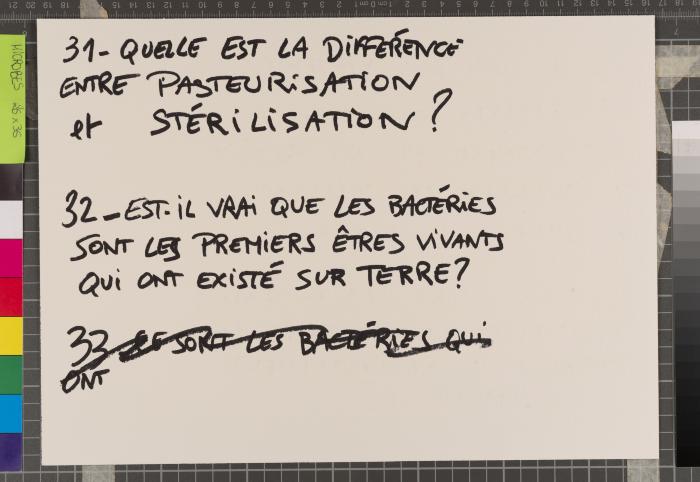 31- QUELLE EST LA DIFFÉRENCE
ENTRE PASTEURISATION
et STÉRILISATION ?
32_EST-IL VRAI QUE LES BACTÉRIES
SONT LES PREMIERS ÊTRES VIVANTS
QUI ONT EXISTÉ SUR TERRE?
33 CE SONT LES BACTÉRIES QUI
ONT
MICROBES